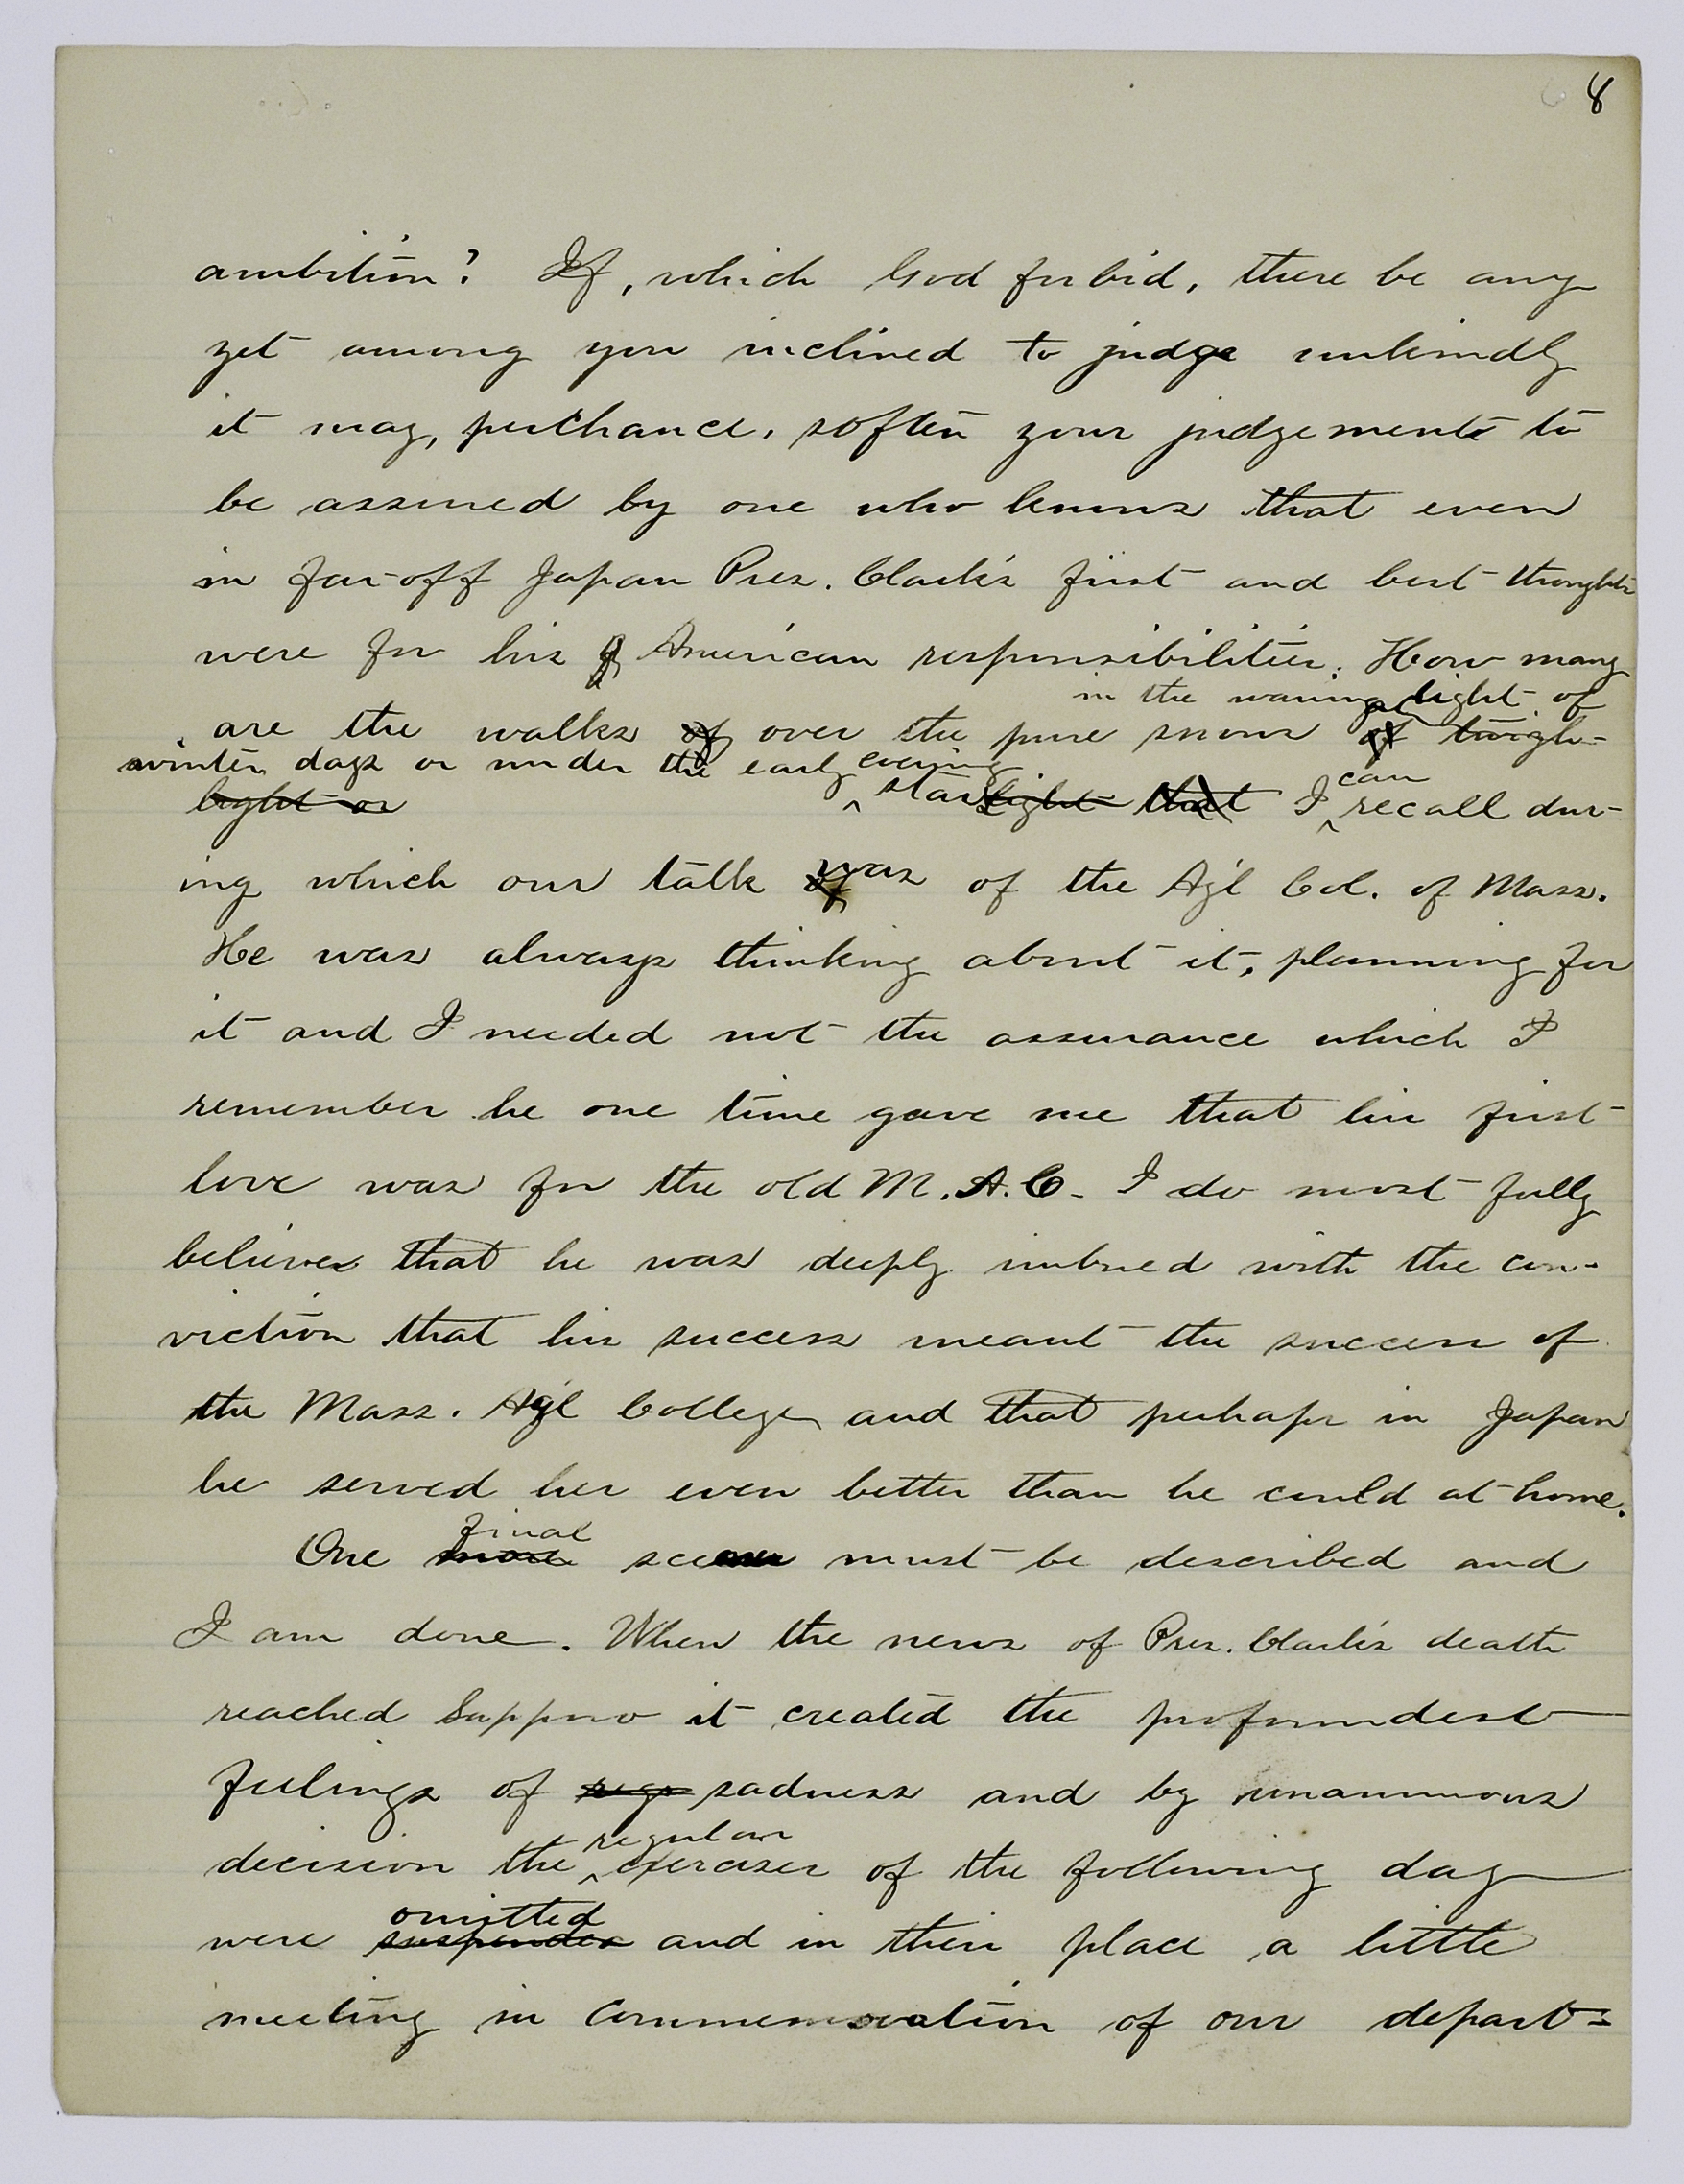 8
ambition? If, which God forbid, there be any
yet among you inclined to judge unkindly
it may, perchance, soften your judgements to
be assured by one who knows that even
in far-off Japan Pres. Clark's first and best thoughts
were for his American responsibilities. How many
in the waning light of
are the walks of over the pure snow of twigh-
winter days or under the early evening
light or stars light that I can recall dur-
ing which our talk was of the Ag'l Col. of Mass.
He was always thinking about it, planning for
it and I needed not the assurance which I
remember he one time gave me that his first
love was for the old M.A.C. I do most fully
believe that he was deeply imbued with the con-
viction that his success meant the success of
the Mass. Ag'l College and that perhaps in Japan
he served her even better than he could at home.
final
One more scene must be described and
I am done. When the news of Pres. Clark's death
reached Sapporo it created the profoundest
feelings of sadness and by unanimous
regular
decision the exercises of the following day
omitted
were suspended and in their place a little
meeting in commemoration of our depart=